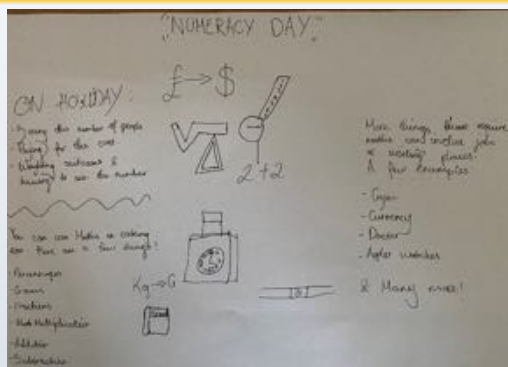 "NUMERACY DAY"
ON HOLIDAY:
- the number of people
- for the cost
- Weighing suitcases &
having to see the number
£ → $
2+2
You can use Maths in cooking
too. Here are a few things!
- Percentages
- Grams
- Fractions
- Multiplication
- Addition
- Subtraction
Kg → G
More things, require
maths can involve jobs
or working places!
A few examples
- Currency
- Doctor
& Many more!